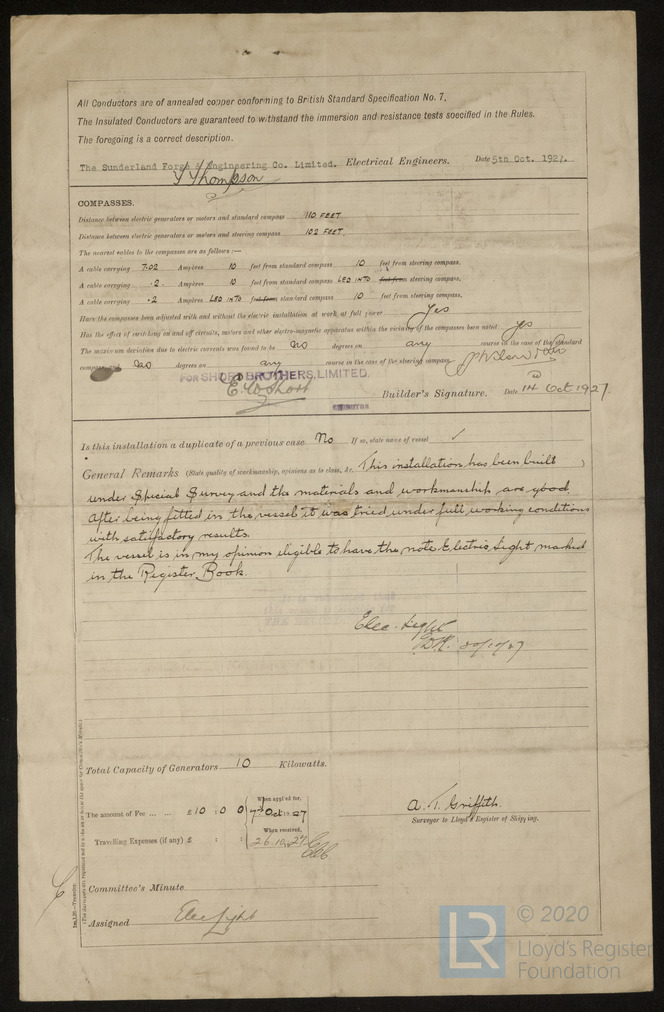 All Conductors are of annealed copper conforming to British Standard Specification No. 7.
The Insulated Conductors are guaranteed to withstand the immersion and resistance tests specified in the Rules.
The foregoing is a correct description.
The Sunderland Forge & Engineering Co. Limited. Electrical Engineers. Date 5th Oct. 1927.
Thompson
COMPASSES.
Distance between electric generators or motors and standard compass 110 FEET
Distance between electric generators or motors and steering compass 102 FEET
The nearest cables to the compasses are as follows:—
A cable carrying 7.02 Ampères 10 feet from standard compass 10 feet from steering compass.
A cable carrying .2 Ampères 10 feet from standard compass LED INTO feet from steering compass.
A cable carrying .2 Ampères LED INTO feet from standard compass 10 feet from steering compass.
Have the compasses been adjusted with and without the electric installation at work at full power Yes
Has the effect of switching on and off circuits, motors and other electro-magnetic apparatus within the vicinity of the compasses been noted yes
The maximum deviation due to electric currents was found to be No degrees on any course in the case of the standard
compass and No degrees on any course in the case of the steering compass
FOR SHORT BROTHERS, LIMITED.
E. W. Short
Builder's Signature. Date 14 Oct 1927.
Is this installation a duplicate of a previous case No If so, state name of vessel ✓
General Remarks (State quality of workmanship, opinions as to class, &c. This installation has been built )
under Special Survey and the materials and workmanship are good.
After being fitted in the vessel it was tried under full working conditions
with satisfactory results.
The vessel is in my opinion eligible to have the note Electric Light marked
in the Register Book.
Elec. Light
20/10/27
Total Capacity of Generators 10 Kilowatts.
The amount of Fee ... ... £10 : 0 : 0
When applied for,
7th Oct 1927
Travelling Expenses (if any) £ : :
When received,
26.10.27
A. T. Griffith.
Surveyor to Lloyd's Register of Shipping.
Committee's Minute
Assigned Elec Light
© 2020
LR
Lloyd's Register
Foundation